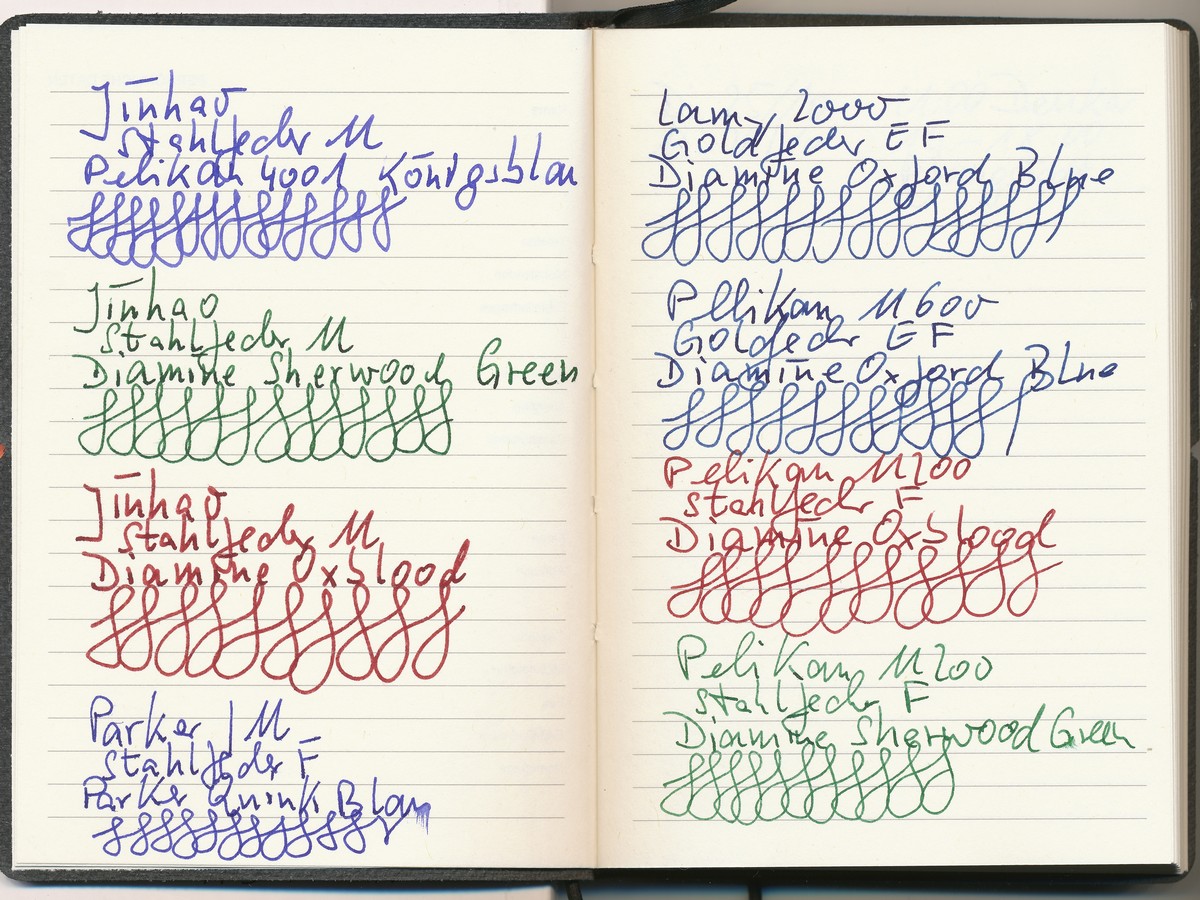 Jinhao
Stahlfeder M
Pelikan 4001 Königsblau
Jinhao
Stahlfeder M
Diamine Sherwood Green
Jinhao
Stahlfeder M
Diamine Oxblood
Parker IM
Stahlfeder F
Parker Quink Blau
Lamy 2000
Goldfeder EF
Diamine Oxford Blue
Pelikan M600
Goldfeder EF
Diamine Oxford Blue
Pelikan M200
Stahlfeder F
Diamine Oxblood
Pelikan M200
Stahlfeder F
Diamine Sherwood Green